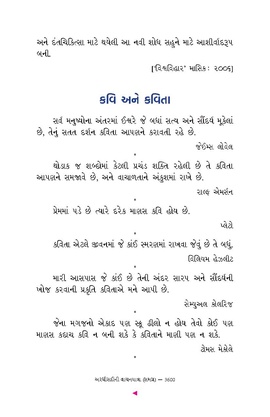 અને દંતચિકિત્સા માટે થયેલી આ નવી શોધ સહુને માટે આશીર્વાદરૂપ
બની.
['વિશ્વવિહાર' માસિક : ૨૦૦૬]
કવિ અને કવિતા
સર્વ મનુષ્યોના અંતરમાં ઈશ્વરે જે બધાં સત્ય અને સૌંદર્ય મૂકેલાં
છે, તેનું સતત દર્શન કવિતા આપણને કરાવતી રહે છે.
જેઈમ્સ લોવેલ
*
થોડાક જ શબ્દોમાં કેટલી પ્રચંડ શક્તિ રહેલી છે તે કવિતા
આપણને સમજાવે છે, અને વાચાળતાને અંકુશમાં રાખે છે.
રાલ્ફ એમર્સન
*
પ્રેમમાં પડે છે ત્યારે દરેક માણસ કવિ હોય છે.
પ્લેટો
*
કવિતા એટલે જીવનમાં જે કાંઈ સ્મરણમાં રાખવા જેવું છે તે બધું.
વિલિયમ હેઝલીટ
*
મારી આસપાસ જે કાંઈ છે તેની અંદર સારપ અને સૌંદર્યની
ખોજ કરવાની પ્રકૃતિ કવિતાએ મને આપી છે.
સેમ્યુઅલ કોલરિજ
*
જેના મગજનો એકાદ પણ સ્ક્રૂ ઢીલો ન હોય તેવો કોઈ પણ
માણસ કદાચ કવિ ન બની શકે કે કવિતાને માણી પણ ન શકે.
ટોમસ મેકોલે
*
અરધી સદીની વાચનયાત્રા